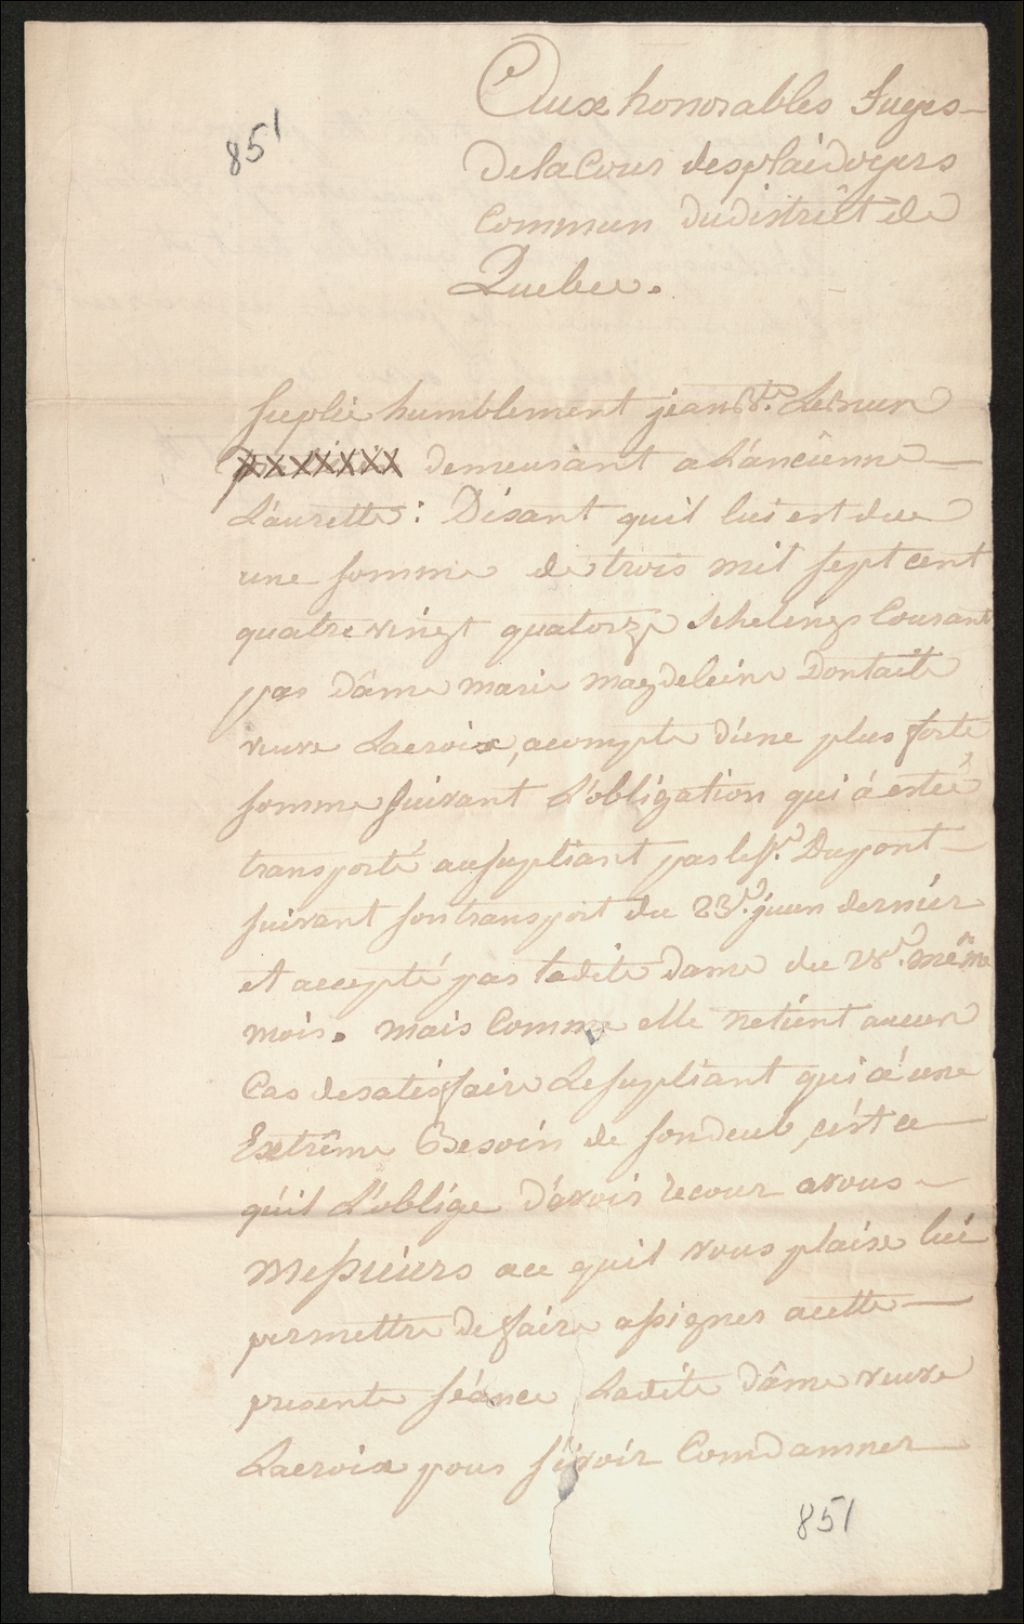 851
Aux honorables Juges
De la Cour desplaidoyers
Commun dudistrîct de
Quebec.
suplie humblement jean Bte. Lebrun
demeurànt a L'anciênne
L'aurette: Disant quil lui est due
une somme de trois mil sept cent
quatre vingt quatorze schelings Courant
par Dâme marie magdeleine Dontaile
veuve Lacroix, acompte d'une plus forte
somme suivant L'obligation qui à estée
transporté ausupliant par le Sr. Dupont
suivant sontransport du 23e. juin dernier
et accepté par ladite dame du 28e. même
mois. mais Comme elle netient aucun
Cas desatisfaire Lesupliant qui à une
Extrême Besoin de sondeub, c'est ce
qúil L'oblige D'avoir recour avous
Messieurs ace quil vous plaise lui
permettre de faire assigner acette
presente séance Ladite dâme veuve
Lacroix pour s'ývoir Comdamner
851